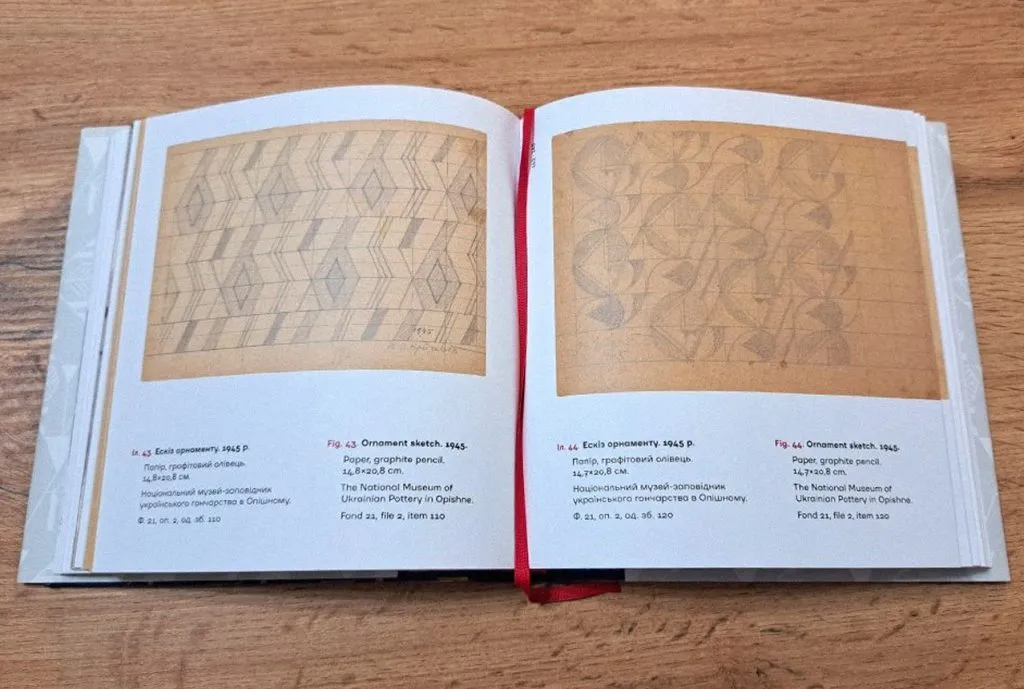 1945
Іл. 43 Ескіз орнаменту. 1945 р.
Папір, графітовий олівець.
14,8×20,8 см.
Національний музей-заповідник
українського гончарства в Опішному.
Ф. 21, оп. 2, од. зб. 110
Fig. 43. Ornament sketch. 1945.
Paper, graphite pencil.
14,8×20,8 cm.
The National Museum of
Ukrainian Pottery in Opishne.
Fond 21, file 2, item 110
Іл. 44 Ескіз орнаменту. 1945 р.
Папір, графітовий олівець.
14,7×20,8 см.
Національний музей-заповідник
українського гончарства в Опішному.
Ф. 21, оп. 2, од. зб. 120
Fig. 44. Ornament sketch. 1945.
Paper, graphite pencil.
14,7×20,8 cm.
The National Museum of
Ukrainian Pottery in Opishne.
Fond 21, file 2, item 120